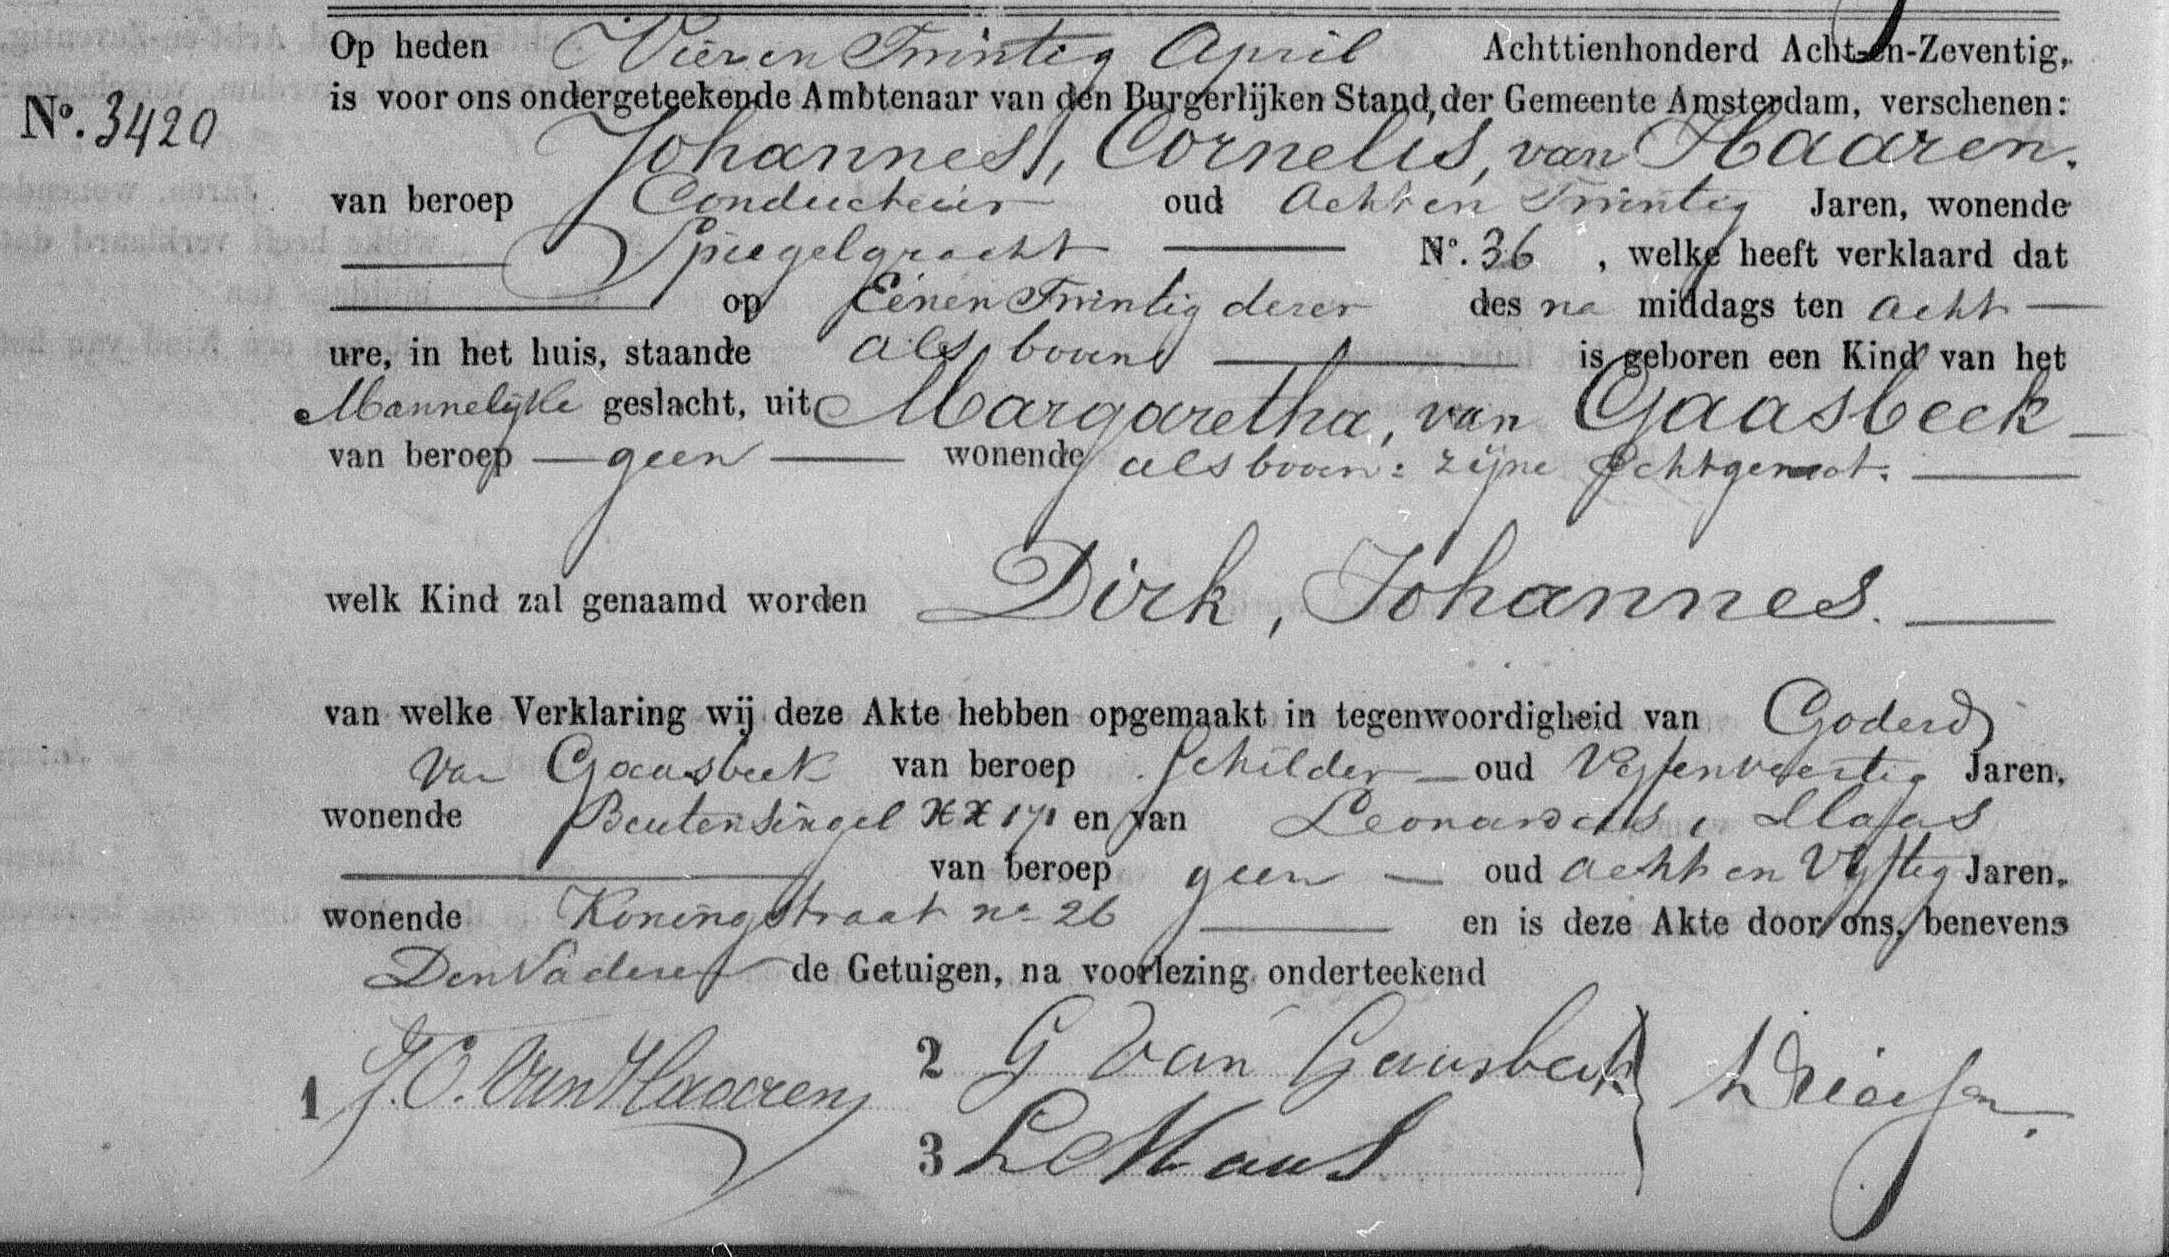 Op heden Vier en Twintig April Achttienhonderd Acht-en-Zeventig,
is voor ons ondergeteekende Ambtenaar van den Burgerlijken Stand, der Gemeente Amsterdam, verschenen:
No. 3420
Johannes, Cornelis, van Haaren.
van beroep Conducteur oud Acht en Twintig Jaren, wonende
Spiegelgracht No. 36, welke heeft verklaard dat
op Eenen Twintig dezer des na middags ten acht
ure, in het huis, staande als boven is geboren een Kind van het
Mannelijke geslacht, uit Margaretha, van Gaasbeek
van beroep geen wonende als boven: zijne Echtgenoot.
welk Kind zal genaamd worden Dirk, Johannes.
van welke Verklaring wij deze Akte hebben opgemaakt in tegenwoordigheid van Goderd
van Gaasbeek van beroep Schilder oud Vijfenveertig Jaren,
wonende Buitensingel XX 171 en van Leonardus, Maas
van beroep geen oud acht en Vijftig Jaren,
wonende Koningstraat no 26 en is deze Akte door ons, benevens
Den Vader en de Getuigen, na voorlezing onderteekend
1 J. C. Van Haaren
2 G Van Gaasbeek
3 L Maas